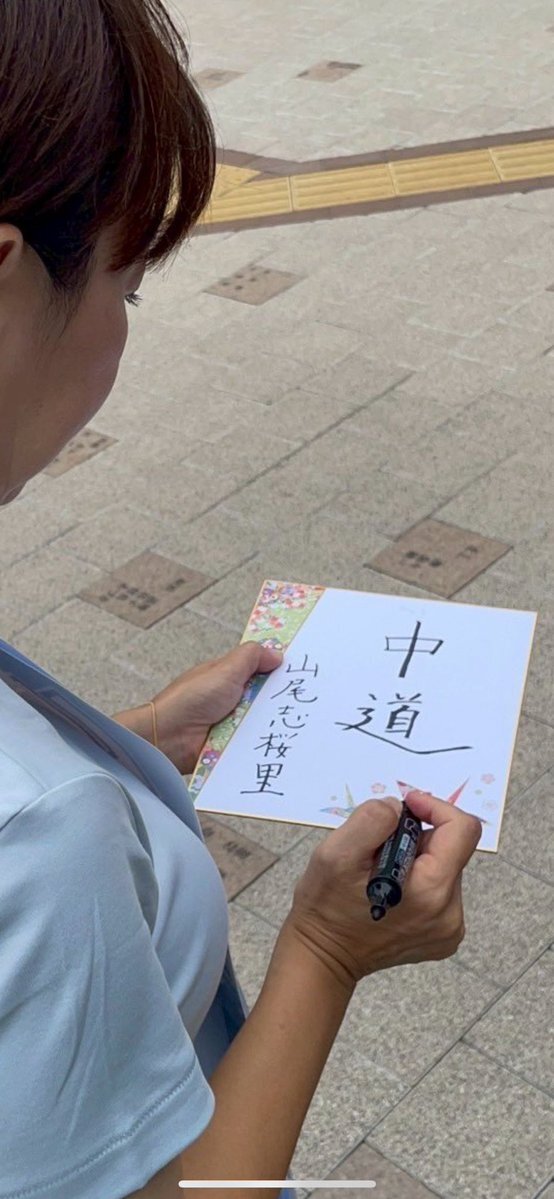 中道
山尾志桜里